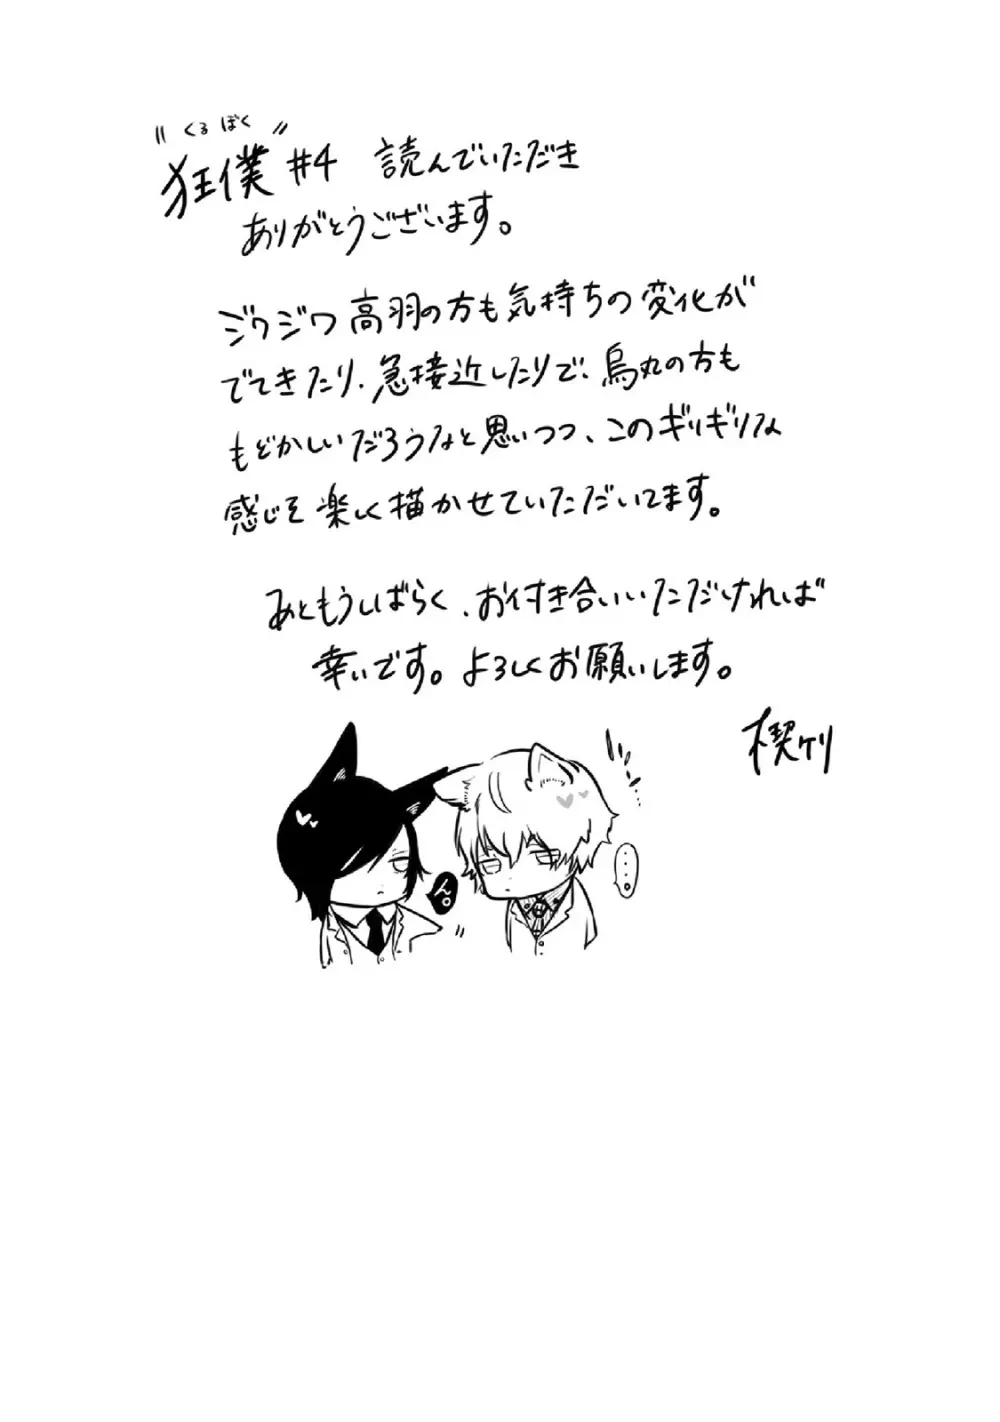 くるぼく
"狂僕" #4 読んでいただき
ありがとうございます。
ジワジワ高羽の方も気持ちの変化が
でてきたり、急接近したりで、烏丸の方も
もどかしいだろうなと思いつつ、このギリギリな
感じを楽しく描かせていただいてます。
あともうしばらく、お付き合いいただければ
幸いです。よろしくお願いします。
楔ケリ
ん。
‥‥。